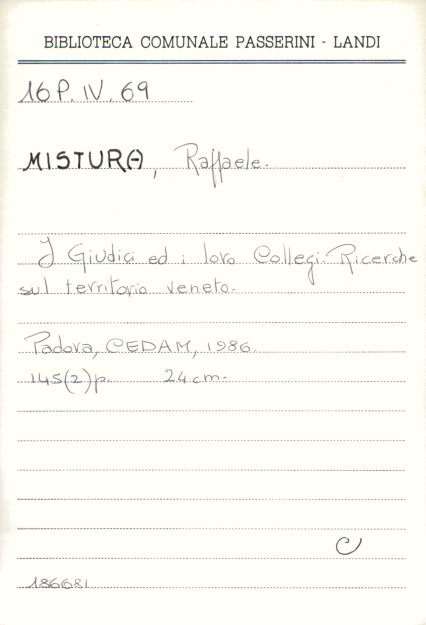 BIBLIOTECA COMUNALE PASSERINI - LANDI
16 P. IV. 69
MISTURA, Raffaele.
I Giudici ed i loro Collegi. Ricerche
sul territorio veneto.
Padova, CEDAM, 1986.
145(2)p. 24cm.
C
186681